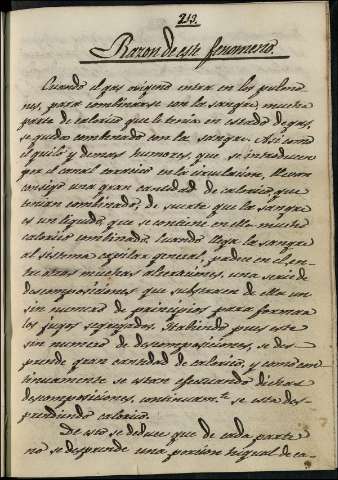 213.
Razon de este fenomeno.
Cuando el gas oxigeno entra en los pulmo-
nes, para combinarse con la sangre, mucha
parte de calorico que le tenia en estado de gas,
se queda combinado con la sangre. Asi como
el quilo y demas humores, que se introducen
por el canal toracico en la circulacion, llevan
consigo una gran cantidad de calorico que
tenian combinado, de suerte que la sangre
es un liquido, que se contiene en ella mucho
calorico combinado. Cuando llega la sangre
al sistema capilar general, padece en el
muchas alteraciones, una serie de
descomposiciones que substraen de ella un
sin numero de principios para formar
los jugos segregados. Habiendo pues este
sin numero de descomposiciones, se des-
prende gran cantidad de calorico, y como con-
tinuamente se estan efectuando dichas
descomposiciones, continuam.te se esta des-
prendiendo calorico.
De esto se deduce que de cada parte
no se desprende una porcion higual de ca-